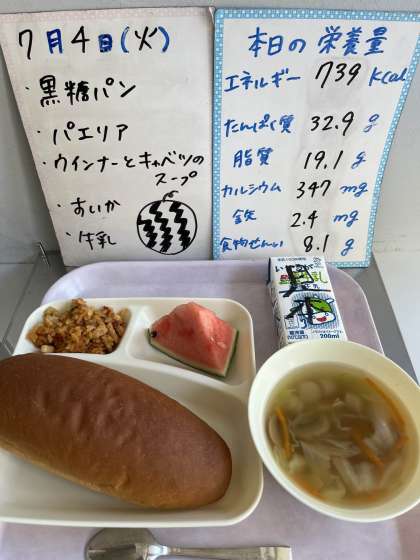 7月4日(火)
・黒糖パン
・パエリア
・ウインナーとキャベツの
スープ
・すいか
・牛乳
本日の栄養量
エネルギー 739 Kcal
たんぱく質 32.9 g
脂質 19.1 g
カルシウム 347 mg
鉄 2.4 mg
食物せんい 8.1 g
200ml